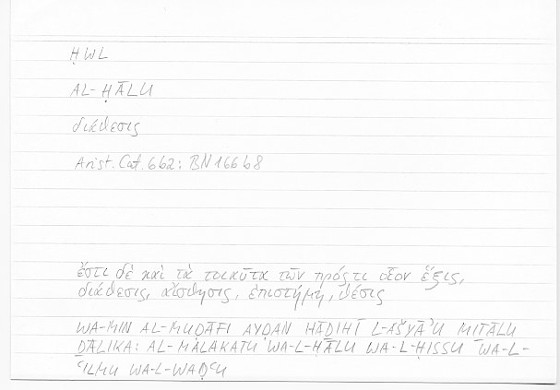 ḤWL
AL-ḤĀLU
διάθεσις
Arist. Cat. 6b2: BN 166b8
ἔστι δὲ καὶ τὰ τοιαῦτα τῶν πρός τι οἷον ἕξις,
διάθεσις, αἴσθησις, ἐπιστήμη, θέσις
WA-MIN AL-MUḌĀFI AYḌAN HĀḎIHĪ L-AŠYĀʾU MIṮĀLU
ḎĀLIKA: AL-MALAKATU WA-L-ḤĀLU WA-L-ḤISSU WA-L-
ʿILMU WA-L-WAḌʿU